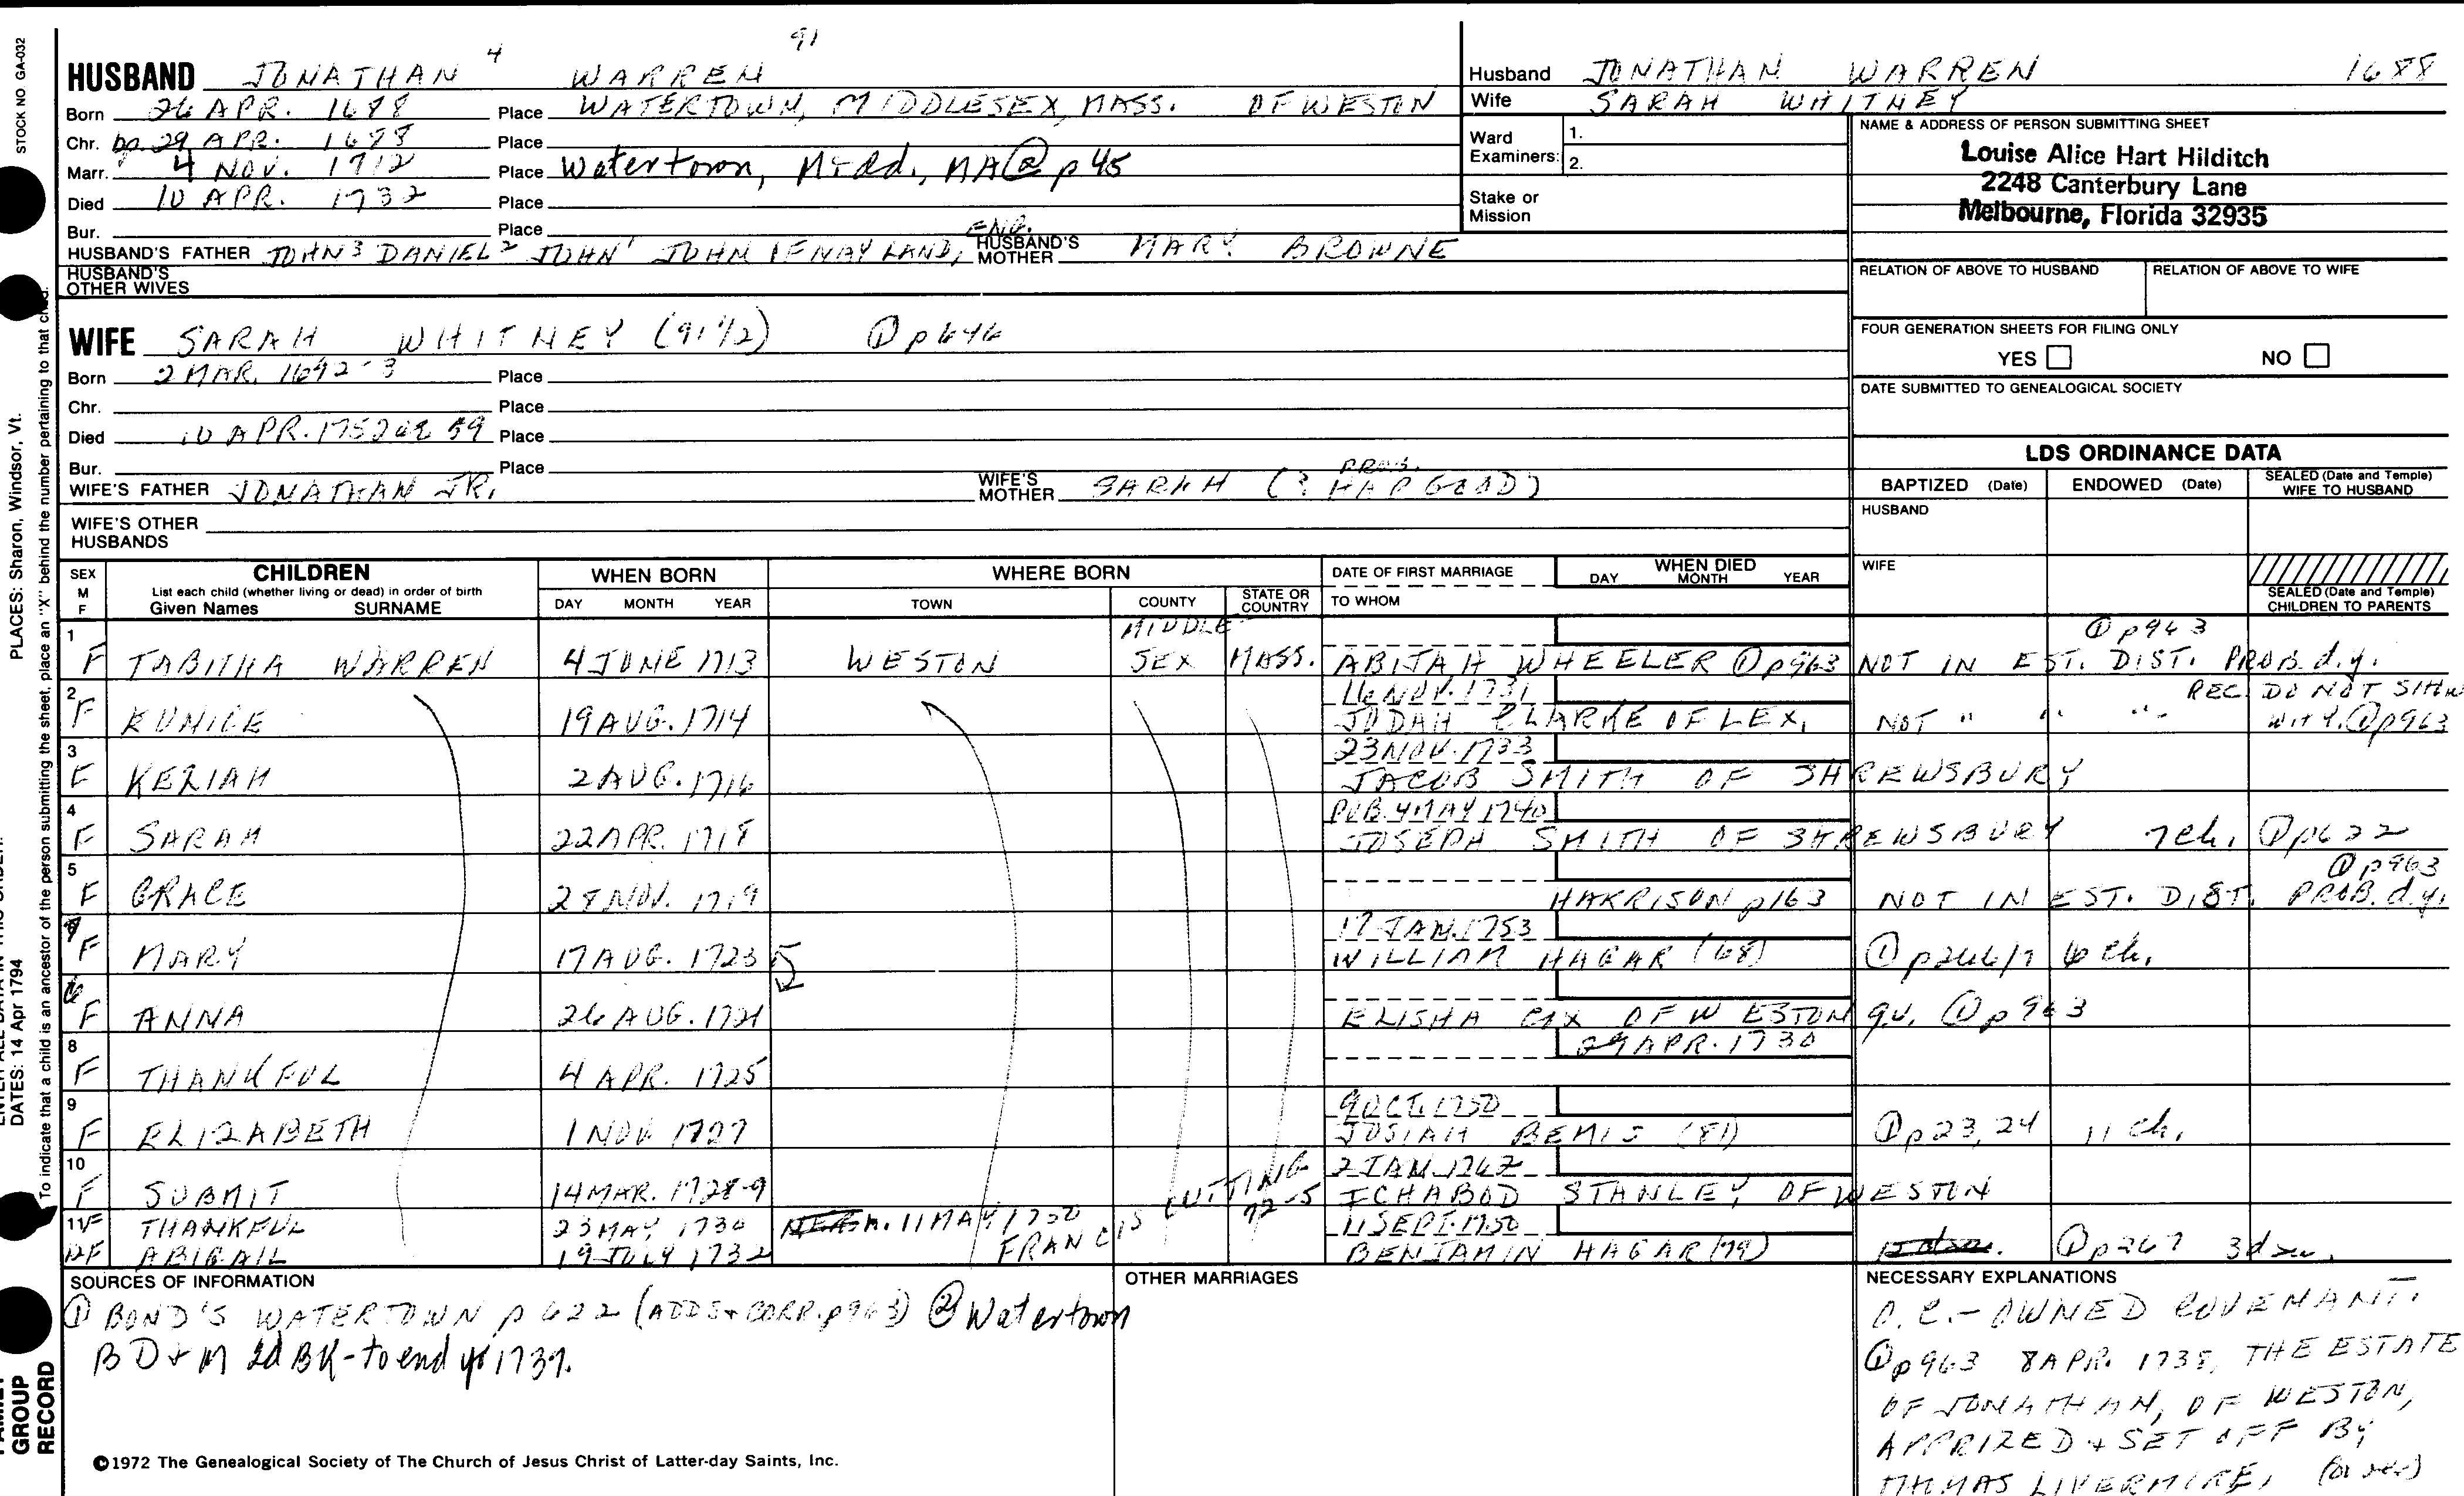 STOCK NO GA-032
91
HUSBAND JONATHAN 4 WARREN
Born 26 APR. 1688 Place WATERTOWN, MIDDLESEX, MASS. OF WESTON
Chr. bp. 29 APR. 1688 Place
Marr. 4 NOV. 1712 Place Watertown, Midd., MA ② p 45
Died 10 APR. 1732 Place
Bur. Place
HUSBAND'S FATHER JOHN 3 DANIEL 2 JOHN 1 JOHN OF NAYLAND, ENG. HUSBAND'S MOTHER MARY BROWNE
HUSBAND'S OTHER WIVES
Husband JONATHAN WARREN 1688
Wife SARAH WHITNEY
Ward Examiners: 1.
2.
Stake or Mission
NAME & ADDRESS OF PERSON SUBMITTING SHEET
Louise Alice Hart Hilditch
2248 Canterbury Lane
Melbourne, Florida 32935
RELATION OF ABOVE TO HUSBAND RELATION OF ABOVE TO WIFE
FOUR GENERATION SHEETS FOR FILING ONLY
YES NO
DATE SUBMITTED TO GENEALOGICAL SOCIETY
WIFE SARAH WHITNEY (91 1/2) ① p 646
Born 2 MAR. 1692-3 Place
Chr. Place
Died 10 APR. 1752 59 Place
Bur. Place
WIFE'S FATHER JONATHAN JR. WIFE'S MOTHER SARAH (? PROB. HAPGOOD)
WIFE'S OTHER HUSBANDS
LDS ORDINANCE DATA
BAPTIZED (Date) ENDOWED (Date) SEALED (Date and Temple) WIFE TO HUSBAND
HUSBAND
WIFE
SEALED (Date and Temple) CHILDREN TO PARENTS
SEX M F CHILDREN List each child (whether living or dead) in order of birth Given Names SURNAME
WHEN BORN DAY MONTH YEAR
WHERE BORN TOWN COUNTY STATE OR COUNTRY
DATE OF FIRST MARRIAGE TO WHOM
WHEN DIED DAY MONTH YEAR
1 F TABITHA WARREN 4 JUNE 1713 WESTON MIDDLESEX MASS. ABIJAH WHEELER ① p963 NOT IN EST. DIST. PROB. d.y. ① p963
2 F EUNICE 19 AUG. 1714 16 NOV. 1731 JUDAH CLARKE OF LEX. NOT " " " REC. DO NOT SHOW WHY. ① p963
3 F KEZIAH 2 AUG. 1716 23 NOV. 1733 JACOB SMITH OF SHREWSBURY
4 F SARAH 22 APR. 1718 PUB. 4 MAY 1740 JOSEPH SMITH OF SHREWSBURY 7 ch. ① p622
5 F GRACE 28 NOV. 1719 HARRISON p163 NOT IN EST. DIST. PROB. d.y. ① p963
7 F MARY 17 AUG. 1723 17 JAN. 1753 WILLIAM HAGAR (68) ① p266/7 6 ch.
6 F ANNA 26 AUG. 1721 ELISHA COX OF WESTON q.v. ① p963
8 F THANKFUL 4 APR. 1725 29 APR. 1730
9 F ELIZABETH 1 NOV 1727 9 OCT. 1750 JOSIAH BEMIS (81) ① p23, 24 11 ch.
10 F SUBMIT 14 MAR. 1728-9 2 JAN. 1762 ICHABOD STANLEY OF WESTON
11 F THANKFUL 23 MAY 1730 m. 11 MAY 1750 FRANCIS CUTTING 72-5
12 F ABIGAIL 19 JULY 1732 11 SEPT. 1750 BENJAMIN HAGAR (79) ① p267 3
SOURCES OF INFORMATION
① BOND'S WATERTOWN p 622 (ADDS + CORR. p963) ② Watertown
BD + M 2d BK - to end yr 1737.
OTHER MARRIAGES
NECESSARY EXPLANATIONS
O.C. - OWNED COVENANT.
① p963 8 APR. 1738, THE ESTATE
OF JONATHAN, OF WESTON,
APPRIZED + SET OFF BY
THOMAS LIVERMORE,
©1972 The Genealogical Society of The Church of Jesus Christ of Latter-day Saints, Inc.
PLACES: Sharon, Windsor, Vt.
DATES: 14 Apr 1794
To indicate that a child is an ancestor of the person submitting the sheet, place an "X" behind the number pertaining to that child.
GROUP
RECORD